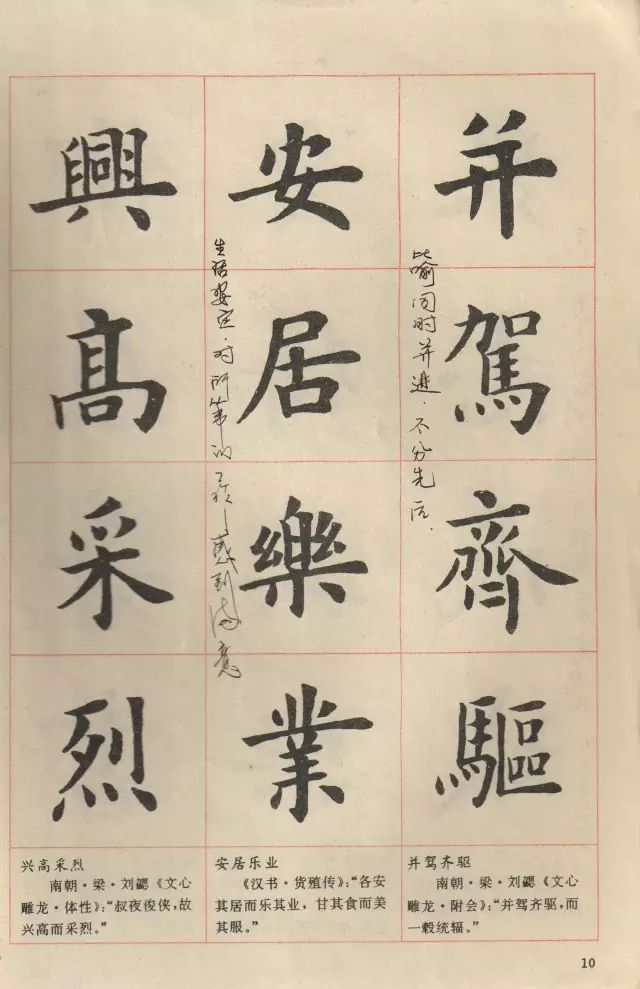 并駕齊驅
安居樂業
興高采烈
比喻同时并进.不分先后.
生活安定.对所从事的工作感到满意
兴高采烈
南朝·梁·刘勰《文心
雕龙·体性》:“叔夜俊侠,故
兴高而采烈。”
安居乐业
《汉书·货殖传》:“各安
其居而乐其业,甘其食而美
其服。”
并驾齐驱
南朝·梁·刘勰《文心
雕龙·附会》:“并驾齐驱,而
一毂统辐。”
10